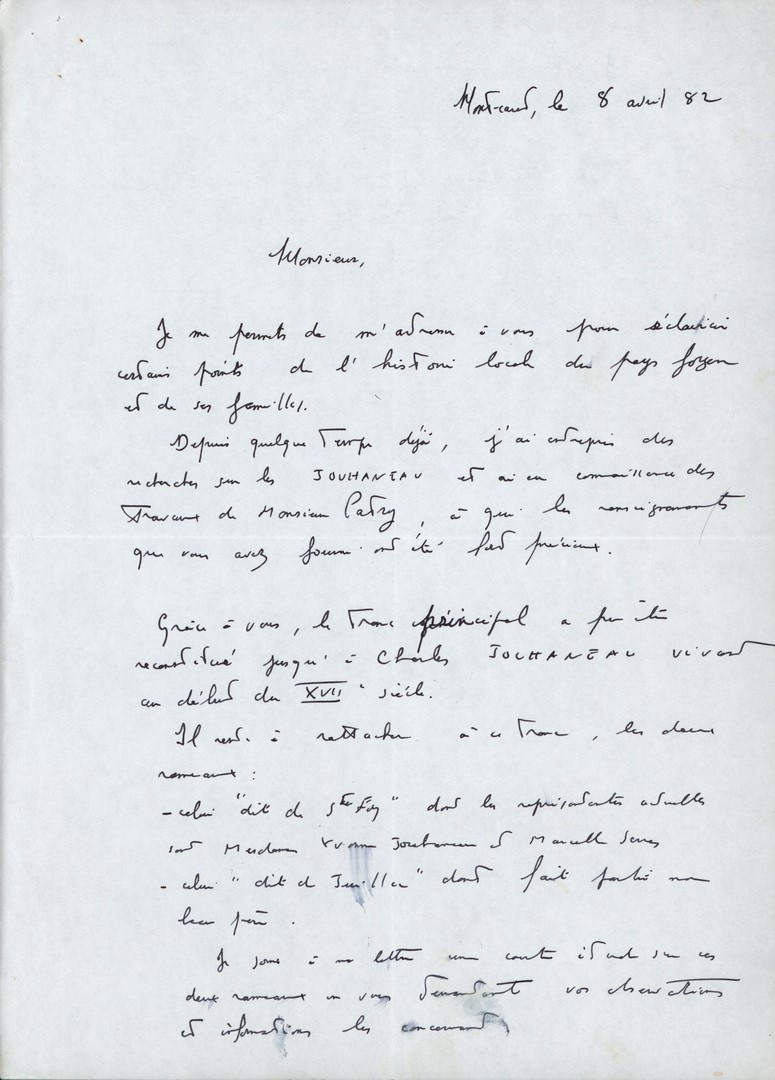 le 8 avril 82
Monsieur,
Je me permets de m'adresser à vous pour éclaircir
certains points de l'histoire locale du pays foyen
et de ses familles.
Depuis quelque temps déjà, j'ai entrepris des
recherches sur les JOUHANEAU et ai eu connaissance des
Travaux de Monsieur Patry, à qui les renseignements
que vous avez fourni ont été fort précieux.
Grâce à vous, le Tronc principal a pu être
reconstitué jusqu'à Charles JOUHANEAU vivant
au début du XVII° siècle.
Il reste à rattacher à ce Tronc, les deux
rameaux :
- celui "dit de Ste Foy" dont les représentantes actuelles
sont Mesdames Yvonne Jouhaneau et Marcelle
- celui "dit de " dont fait partie mon
beau père.
Je joins à ma lettre une courte étude sur ces
deux rameaux en vous demandant vos observations
et informations les concernant,